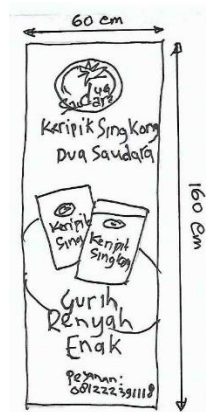 60 cm
Dua
Saudara
Keripik Singkong
Dua Saudara
160 cm
Keripik
Sing
Keripik
Singkong
Gurih
Renyah
Enak
Pesanan:
081222391118